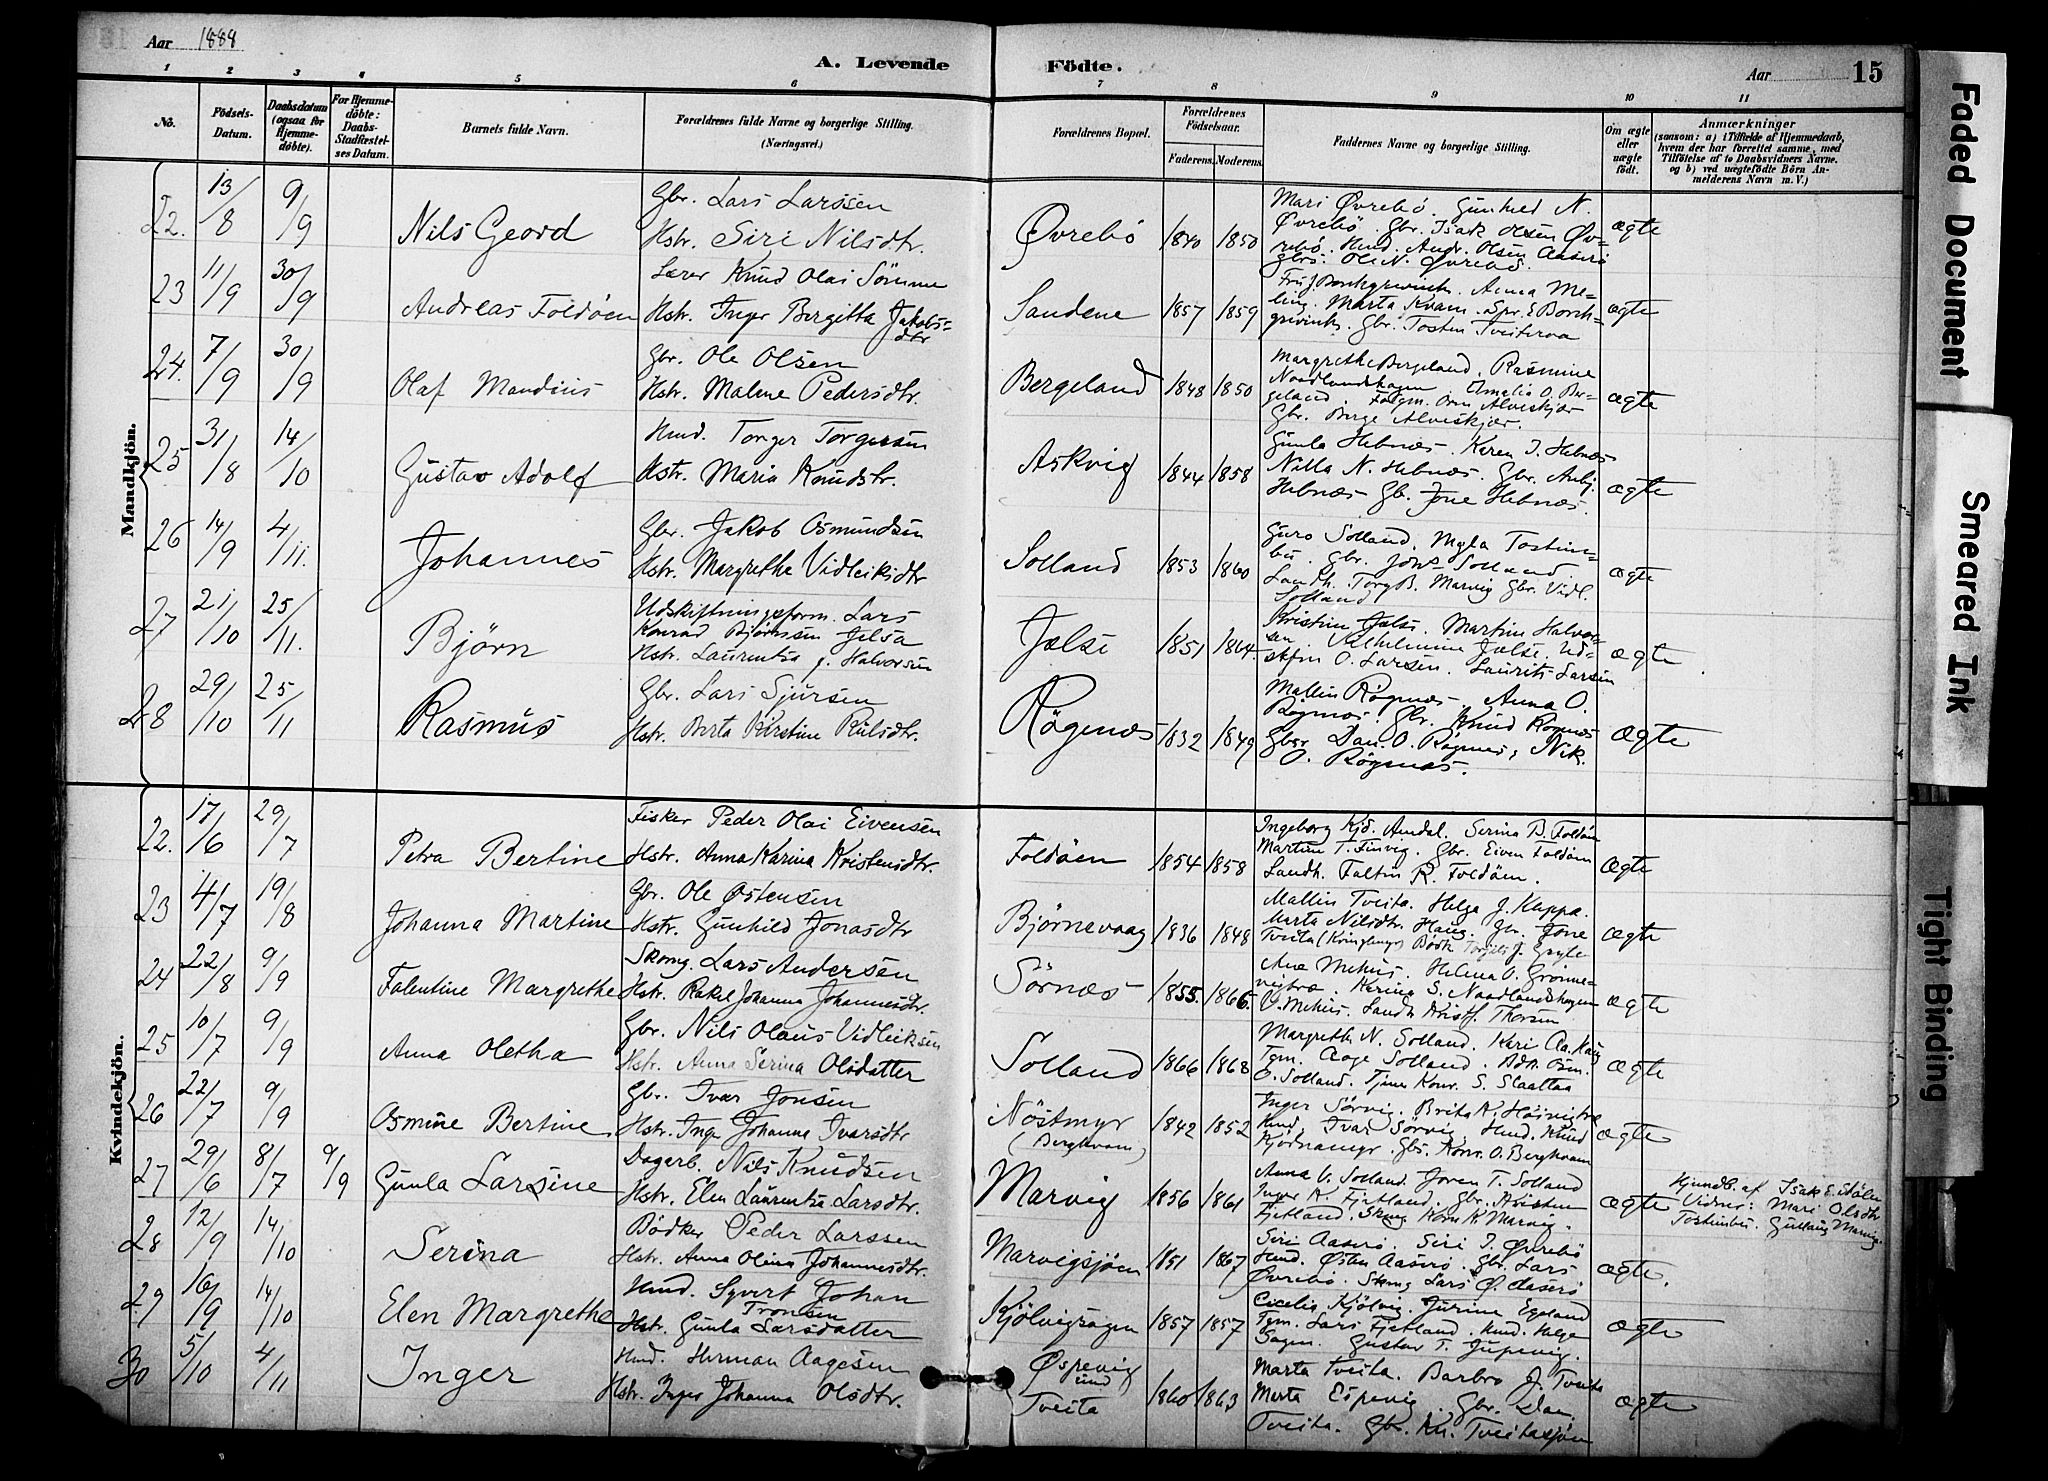 Aar 1888
A. Levende Födte.
Aar 15
1 2 3 4 5 6 7 8 9 10 11
No.
Födsels-Datum.
Daabsdatum (ogsaa for Hjemmedöbte).
For Hjemmedöbte: Daabs-Stadfæstelses Datum.
Barnets fulde Navn.
Forældrenes fulde Navne og borgerlige Stilling.
(Næringsvei.)
Forældrenes Bopæl.
Forældrenes Födselsaar.
Faderens. Moderens.
Faddernes Navne og borgerlige Stilling.
Om ægte eller uægte födt.
Anmærkninger
(saasom: a) i Tilfælde af Hjemmedaab, hvem der har forrettet samme, med Tilföielse af to Daabsvidners Navne. og b) ved uægtefödte Börn Anmelderens Navn m. V.)
Mandkjön.
22. 13/8 9/9 Nils Geord
Gbr. Lars Larssen
Hstr. Siri Nilsdtr.
Øvrebö 1840 1850
Mari Øvrebö. Gunhild N.
Øvrebö. Gbr. Isak Olsen Øv-
rebö. Hmd. Andr. Olsen Aaserö
Gbrs. Ole N. Øvrebö.
ægte
23 11/9 30/9 Andreas Foldöen
Lærer Knud Olai Sömme
Hstr. Inger Birgitta Jakobs-
dtr
Sandene 1857 1859
Anna Me-
ling. Marta Kvam. Spr. E Borch-
grevink. Gbr. Tosten Tveiteraa
ægte
24. 7/9 30/9 Olaf Mandius
Gbr. Ole Olsen
Hstr. Malene Pedersdtr.
Bergeland 1848 1850
Margrethe Bergeland. Rasmine
Naadlandshagen. Amalia O. Ber-
geland. Orm Alveskjær
Gbr. Birge Alveskjær.
ægte
25 31/8 14/10 Gustav Adolf
Hmd. Torger Torgersen
Hstr. Maria Knudstr.
Askvig 1844 1858
Gunla Hebnæs. Karen I. Hebnæs
Nilla N. Hebnæs. Gbr.
Hebnæs Gb. Jone Hebnæs.
ægte
26 14/9 4/11. Johannes
Gbr. Jakob Osmundsen
Hstr. Margrethe Vidleiksdtr
Solland 1853 1860
Guro Solland. Tostein-
bu. Gbr. Jons Solland.
Landh. Torg B. Marvig Gbr. Vidl.
Solland
ægte
27 21/10 25/11. Björn
Udskiftningsform. Lars
Konrad Björnssen Jelsa
Hstr. Laurentsa f. Halvorsen
Jælse 1851 1864.
Kristine Jælse. Martine Halvor-
sen Vilhelmine Jælse. Ud-
skfm O. Larsen. Laurits Larsen
ægte
28 29/10 25/11 Rasmus
Gbr. Lars Sjursen
Hstr. Berta Kirstine
Rögenæs 1832 1849
Mallin Rögenæs. Anna O.
Rögnæs. Gbr. Knud Rögnæs
Gbsr Dan. O. Rögnæs, Nik.
O. Rögenæs.
ægte
Kvindekjön.
22. 17/6 29/7 Petra Bertine
Fisker Peder Olai Eivensen
Hstr. Anna Karina Kristensdtr.
Foldöen 1854 1858
Ingeborg Kjd. Amdal. Serina B. Foldöen
Martine T. Finvig. Gbr. Eiven Foldöen
Landh. Faltin R. Foldöen.
ægte
23 4/7 19/8 Johanna Martine
Gbr. Ole Østensen
Hstr. Gunhild Jonasdtr
Björnevaag 1836 1848
Mallin Tveita. Helga J. Kappa.
Marta Nilsdtr. Haug. Gbr. Jone
Tveita Bödk
ægte
24 22/8 9/9 Falentine Margrethe
Skomg. Lars Andersen
Hstr. Rakel Johanna Johannesdtr.
Sörnæs 1855. 1866.
Ane Mehus. Helena O. Grönne-
vigtræ. Karina S. Naadlandshagen
O. Mehus. Landh. Thorsen
ægte
25 10/7 9/9 Anna Oletha
Gbr. Nils Olaus Vidleiksen
Hstr. Anna Serina Olsdatter
Solland 1866 1868
Margrethe N. Solland. Kari Aa. Haug
Tgm. Aage Solland.
O. Solland. Tjener Konr. S. Slaattaa
ægte
26 22/7 9/9 Osmine Bertine.
Gbr. Ivar Jonsen
Hstr. Inger Johanna Ivarsdtr
Nöstmyr
(Berghvam) 1842 1852
Inger Sörvig. Brita K. Höivigtræ
Hmd. Ivar Sörvig. Hmd. Knud
Kjödnamyr. Gbs. Konr. O. Berghvam
ægte
27 29/6 8/7 9/9 Gunla Larsine
Dagarb. Nils Knudsen
Hstr. Elen Laurentsa Larsdtr.
Marvig 1856 1861
Anna V. Solland. Joren T. Solland
Inger K. Fjetland. Gbr. Kristen
Fjetland. Skmg Korn. K. Marvig.
ægte
Hjmdb. af Isak E. Stölen
Vidner: Mari Olsdtr
Tosteinbu. Gustav Marvig.
28 12/9 14/10 Serina
Bödker Peder Larssen
Hstr. Anna Olina Johannesdtr.
Marvigsjöen 1851 1867
Siri Aaserö. Siri I. Øvrebö
Hmd. Østen Aaserö. Gbr. Lars
Øvrebö. Skmg Lars Ø. Aaserö
ægte.
29 16/9 14/10 Elen Margrethe
Hmd. Syvert Johan
Tronsen
Hstr. Gunla Larsdatter
Kjölvigsagen 1857 1857
Cicelia Kjölvig. Jurine Egeland
Tgm. Lars Fjetland. Hmd. Helge
Sagen. Gustav T. Jupevig.
ægte
30 5/10 4/11 Inger
Hmd. Herman Aagesen
Hstr. Inger Johanna Olsdtr.
Øspevig
und
Tveita 1860 1863
Marta Tveita. Barbro J. Tveita
Marta Espevig. Gbr. Dan.
Tveita. Gbr. Kn. Tveitasjöen
ægte
Faded Document
Smeared Ink
Tight Binding